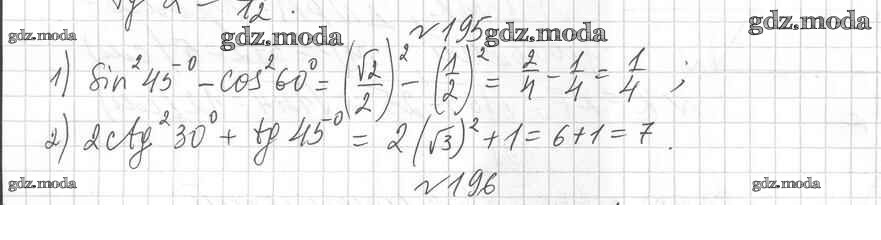 gdz.moda gdz.moda №195 gdz.moda gdz.moda
1) sin²45° - cos²60° = (√2/2)² - (1/2)² = 2/4 - 1/4 = 1/4 ;
2) 2ctg²30° + tg 45° = 2(√3)² + 1 = 6 + 1 = 7 .
gdz.moda №196 gdz.moda